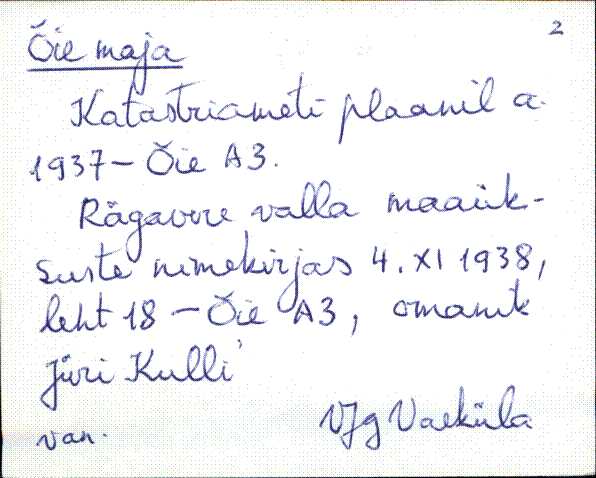 2
Õie maja
Katastriameti plaanil a.
1937 – Õie A3.
Rägavere valla maaük-
suste nimekirjas 4. XI 1938,
leht 18 – Õie A3, omanik
Jüri Kulli
van. VJg Vaeküla